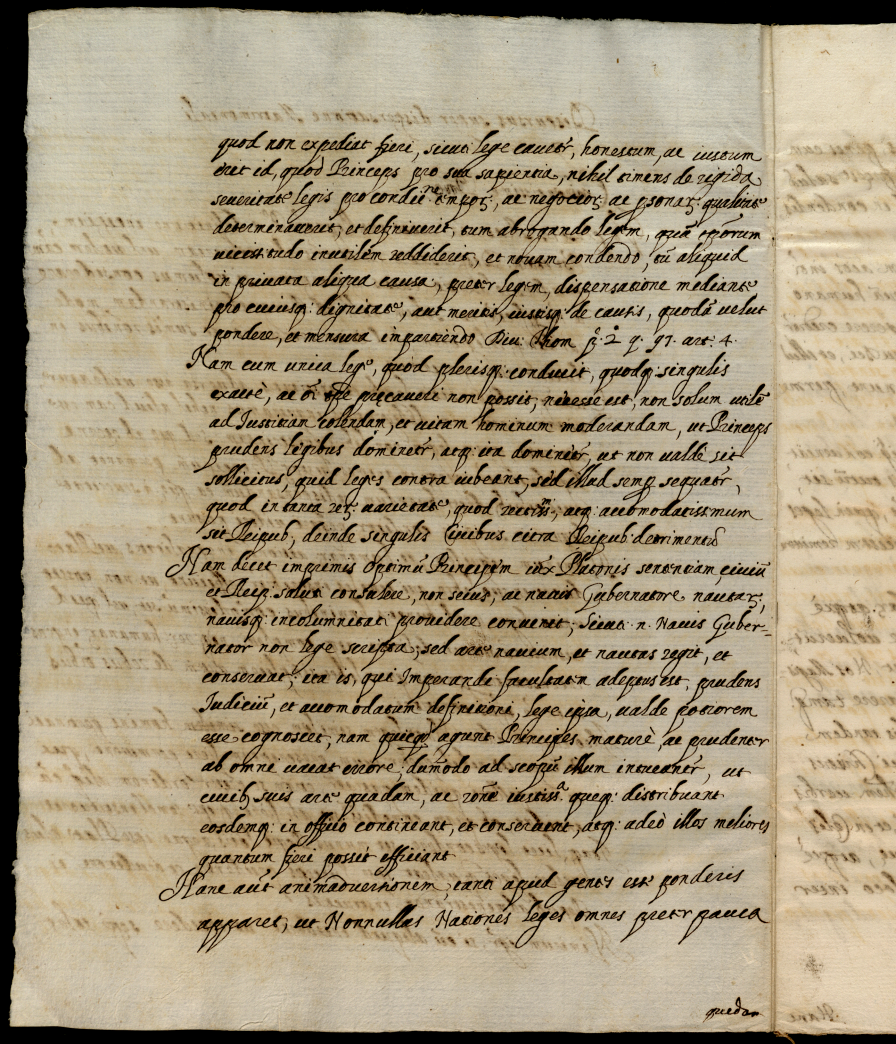 quod non expediat fieri, sicuti lege cavetr, honestum, ac iustum
erit id, quod Princeps pro sua sapientia, nihil timens de rigida
severitate legis pro condit.ne tempoꝝ, ac negocioꝝ ac ꝑsonaꝝ qualitate
determinaverit, et definiverit, tum abrogando legem, quã
vicissitudo inutilem reddiderit, et novam condendo, tũ aliquid
in privata aliqua causa, preter legem, dispensatione mediante
pro cuiusq: dignitate, aut meritis, iustisq: de causis, quodã velut
pondere, et mensura impartiendo Div: Thom p.ª 2.ª q. 97. art: 4.
Nam cum unica lege, quod plerisq: conducit, quodq: singulis
exactè, ac precaveri non possit, necesse est, non solum utile
ad Iustitiam colendam, et vitam hominum moderandam, ut Princeps
prudens legibus dominetr, atq: ita dominetr, ut non valdè sit
sollicitus, quid leges contra iubeant, sed illud semꝑ sequatr,
quod in tanta reꝝ varietate, quod rectiss.m, atq: accomodatissimum
sit Reipub., deinde singulis Civibus citra Reipub: detrimentũ
Nam decet imprimis optimũ Principem iux.ª Platonis sententiam, civiũ
et Reip: saluti consulere, non secus, ac navis Gubernatore nautaꝝ,
navisq: incolumitati providere convenit; Sicuti .n. Navis Guber-
nator non lege scripta, sed arte navium, et nautas regit, et
conservat; ita is, qui Imperandi facultatem adeptus est, prudens
Iudiciũ, et accomodatum definitioni, lege ipsa, valde potiorem
esse cognoscet, nam quicq.d agunt Principes maturè, ac prudenter
ab omni vacat errore, dumodo ad scopũ illum intueantr, ut
civibꝫ suis arte quadam, ac rone iustiss.ª queq: distribuant
eosdemq: in officio contineant, et conservent, atq: adeò illos meliores
quantum fieri possit efficiant
Hanc aut animadversionem, tanti apud gentes esse ponderis
apparet, ut Nonnullas Nationes leges omnes preter pauca
quedam